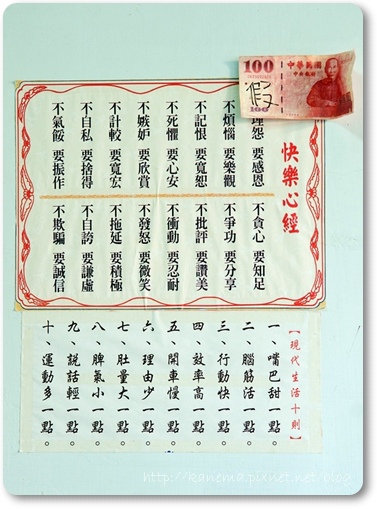 100 中華民國
假
100
快樂心經
埋怨 要感恩
不煩惱 要樂觀
不記恨 要寬恕
不死懼 要心安
不嫉妒 要欣賞
不計較 要寬宏
不自私 要捨得
不氣餒 要振作
不貪心 要知足
不爭功 要分享
不批評 要讚美
不衝動 要忍耐
不發怒 要微笑
不拖延 要積極
不自誇 要謙虛
不欺騙 要誠信
【現代生活十則】
一、嘴巴甜一點。
二、腦筋活一點。
三、行動快一點。
四、效率高一點。
五、開車慢一點。
六、理由少一點。
七、肚量大一點。
八、脾氣小一點。
九、說話輕一點。
十、運動多一點。
http://kanema.pixnet.net/blog